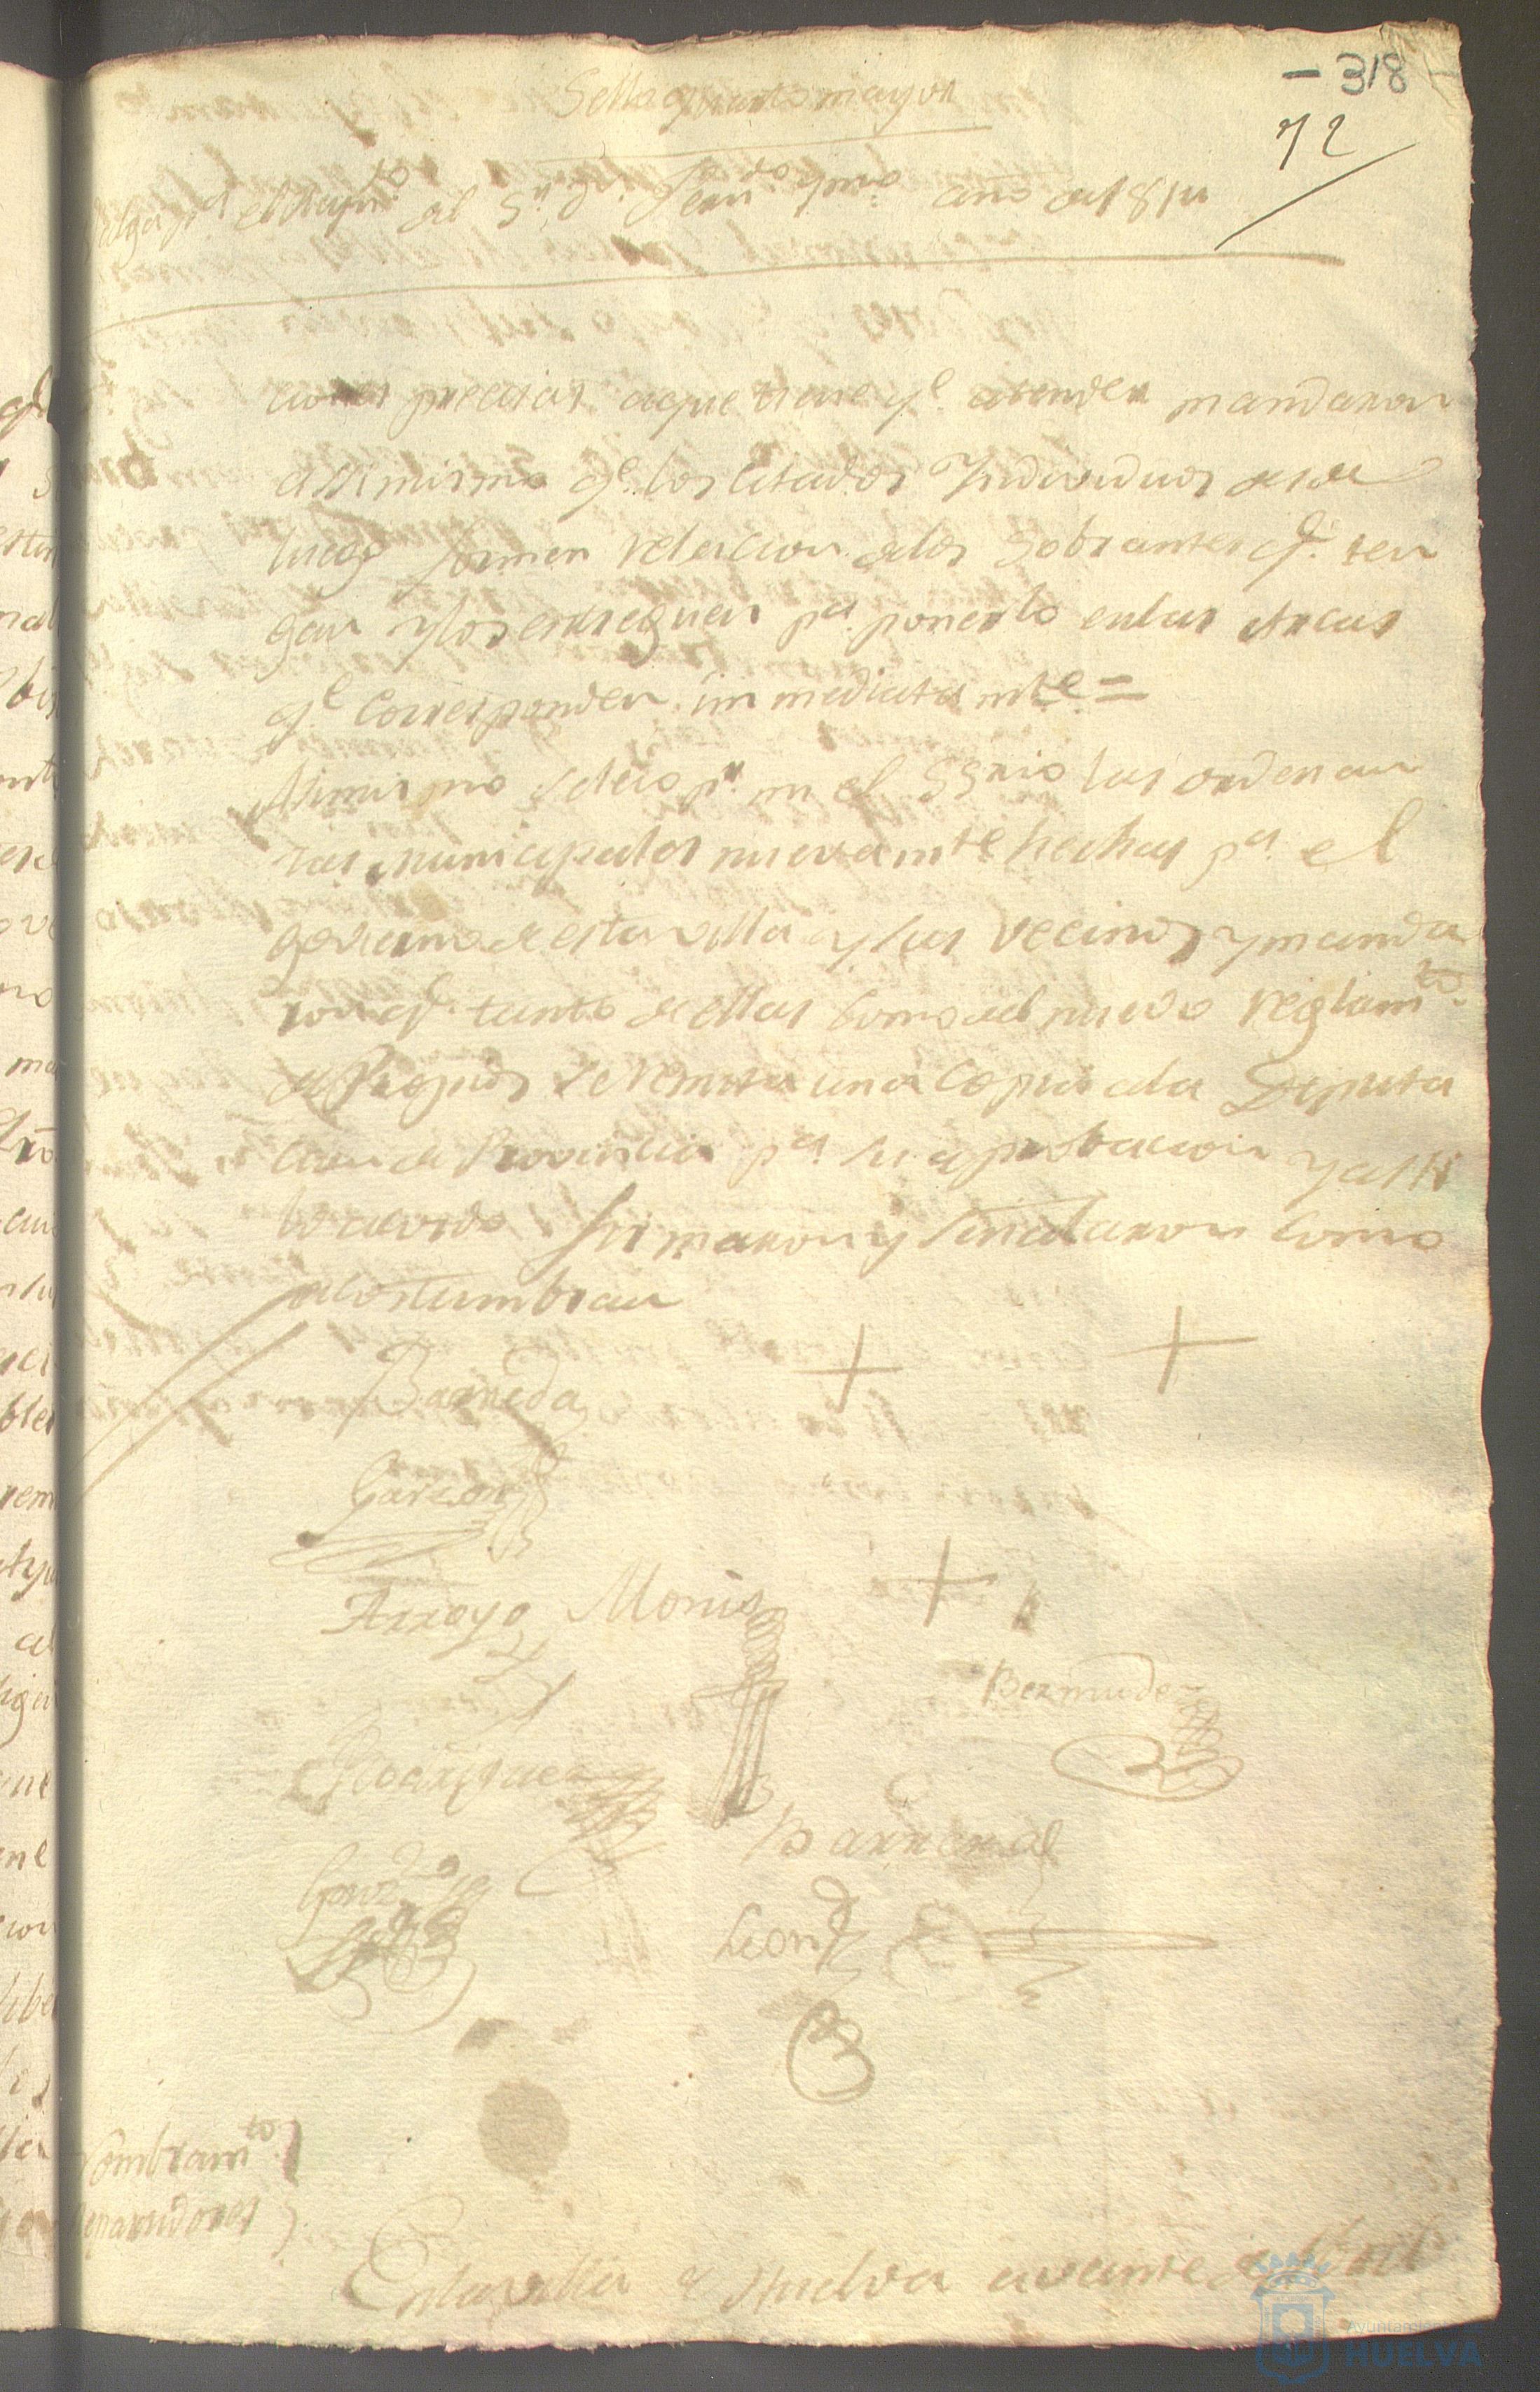 - 318 -
72
Sello quarto mayor
Valga pa. el Reyn.do del S.r D.n Fern.do 7.mo año de 1814
ciones precisas aque tiene q.e atender mandaron
assimismo q.e los Citados Individuos desde
luego formen relacion delos Sobrantes q.e ten
gan y los entreguen pa. ponerlo enlas Arcas
q.e Corresponden immediatam.te =
Asimismo se leio p.r mi el SSrio las ordenan
zas municipales nuevam.te hechas pa. el
govierno de esta villa y sus vecinos y manda
ron q.e tanto de ellas Como del nuevo reglam.to
de Propios se remita una Copia ala Diputa
cion de Provincia pa. su aprobacion y assi
lo acordo firmaron y señalaron Como
acostumbran
Barreda
Garzon
Arroyo Monis
Bermudez
Rodriguez
Barreral
Gonz.z
Leon
Nombram.to
Reparidores
Enla villa de Huelva a veinte de Abril
Ayuntamiento
HUELVA